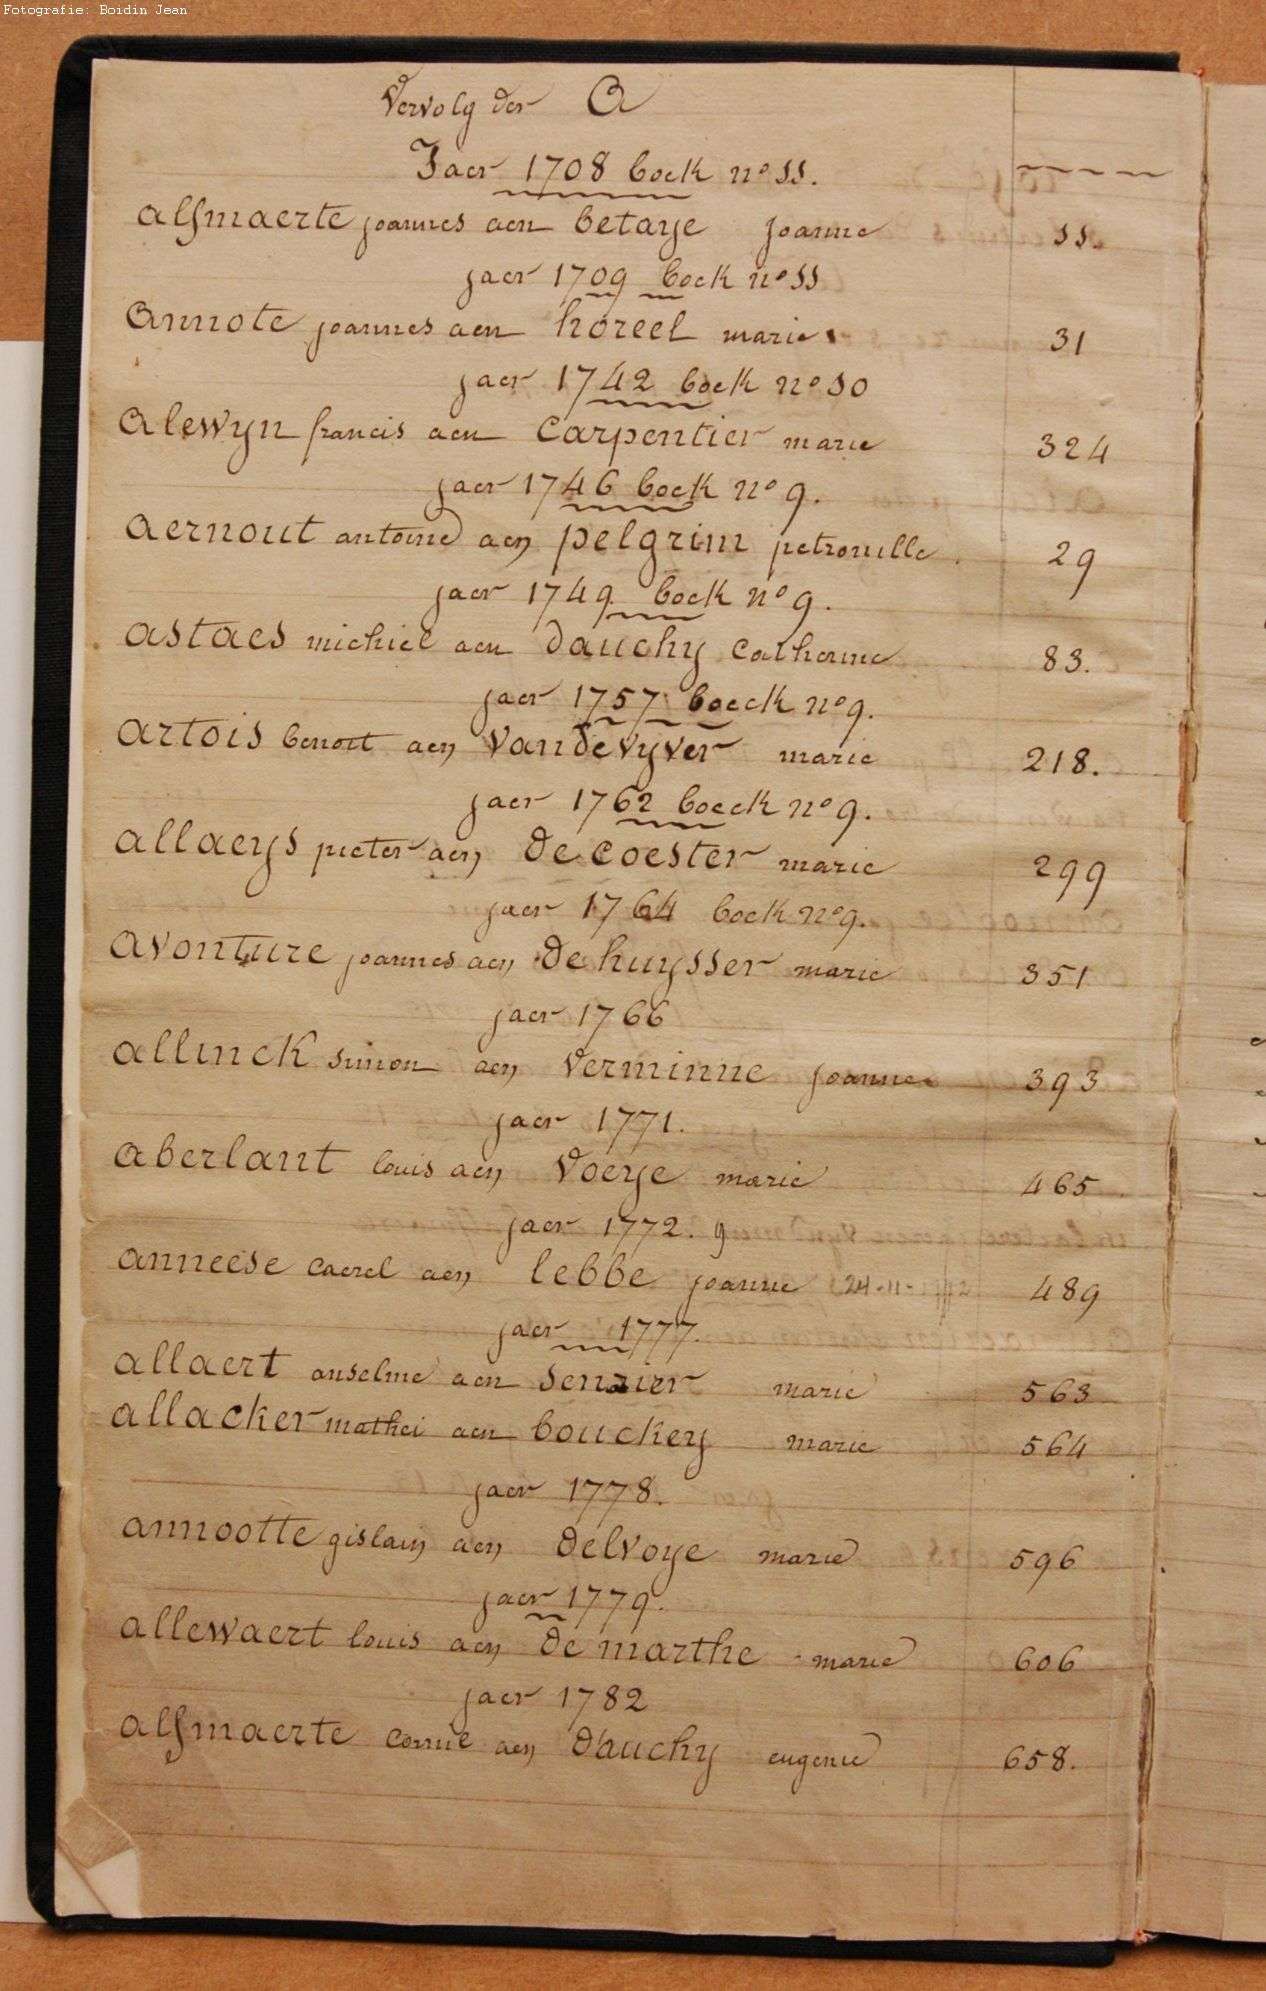 Fotografie: Boidin Jean
Vervolg der A
Jaer 1708 boek nº 11.
alsmaerte joannes aen betaye joanne 11.
jaer 1709 boek nº 11
annote joannes aen horeel marie 31
jaer 1742 boek nº 10
alewyn francis aen carpentier marie 324
jaer 1746 boek nº 9.
aernout antoine aen pelgrim petronille 29
jaer 1749 boek nº 9.
astaes michiel aen dauchy catherine 83.
jaer 1757 boeck nº 9.
artois benoit aen vandevyver marie 218.
jaer 1762 boeck nº 9.
allaeys pieter aen de coester marie 299
jaer 1764 boek nº 9.
avonture joannes aen de huysser marie 351
jaer 1766
allinck simon aen verminne joanne 393
jaer 1771.
aberlant louis aen voeye marie 465
jaer 1772. 9
anneese caerel aen lebbe joanne 24-11- 489
jaer 1777.
allaert anselme aen marie 563
allacker mathei aen bouckey marie 564
jaer 1778.
annootte gislain aen delvoye marie 596
jaer 1779.
allewaert louis aen de marthe marie 606
jaer 1782
alsmaerte aen dauchy eugenie 658.